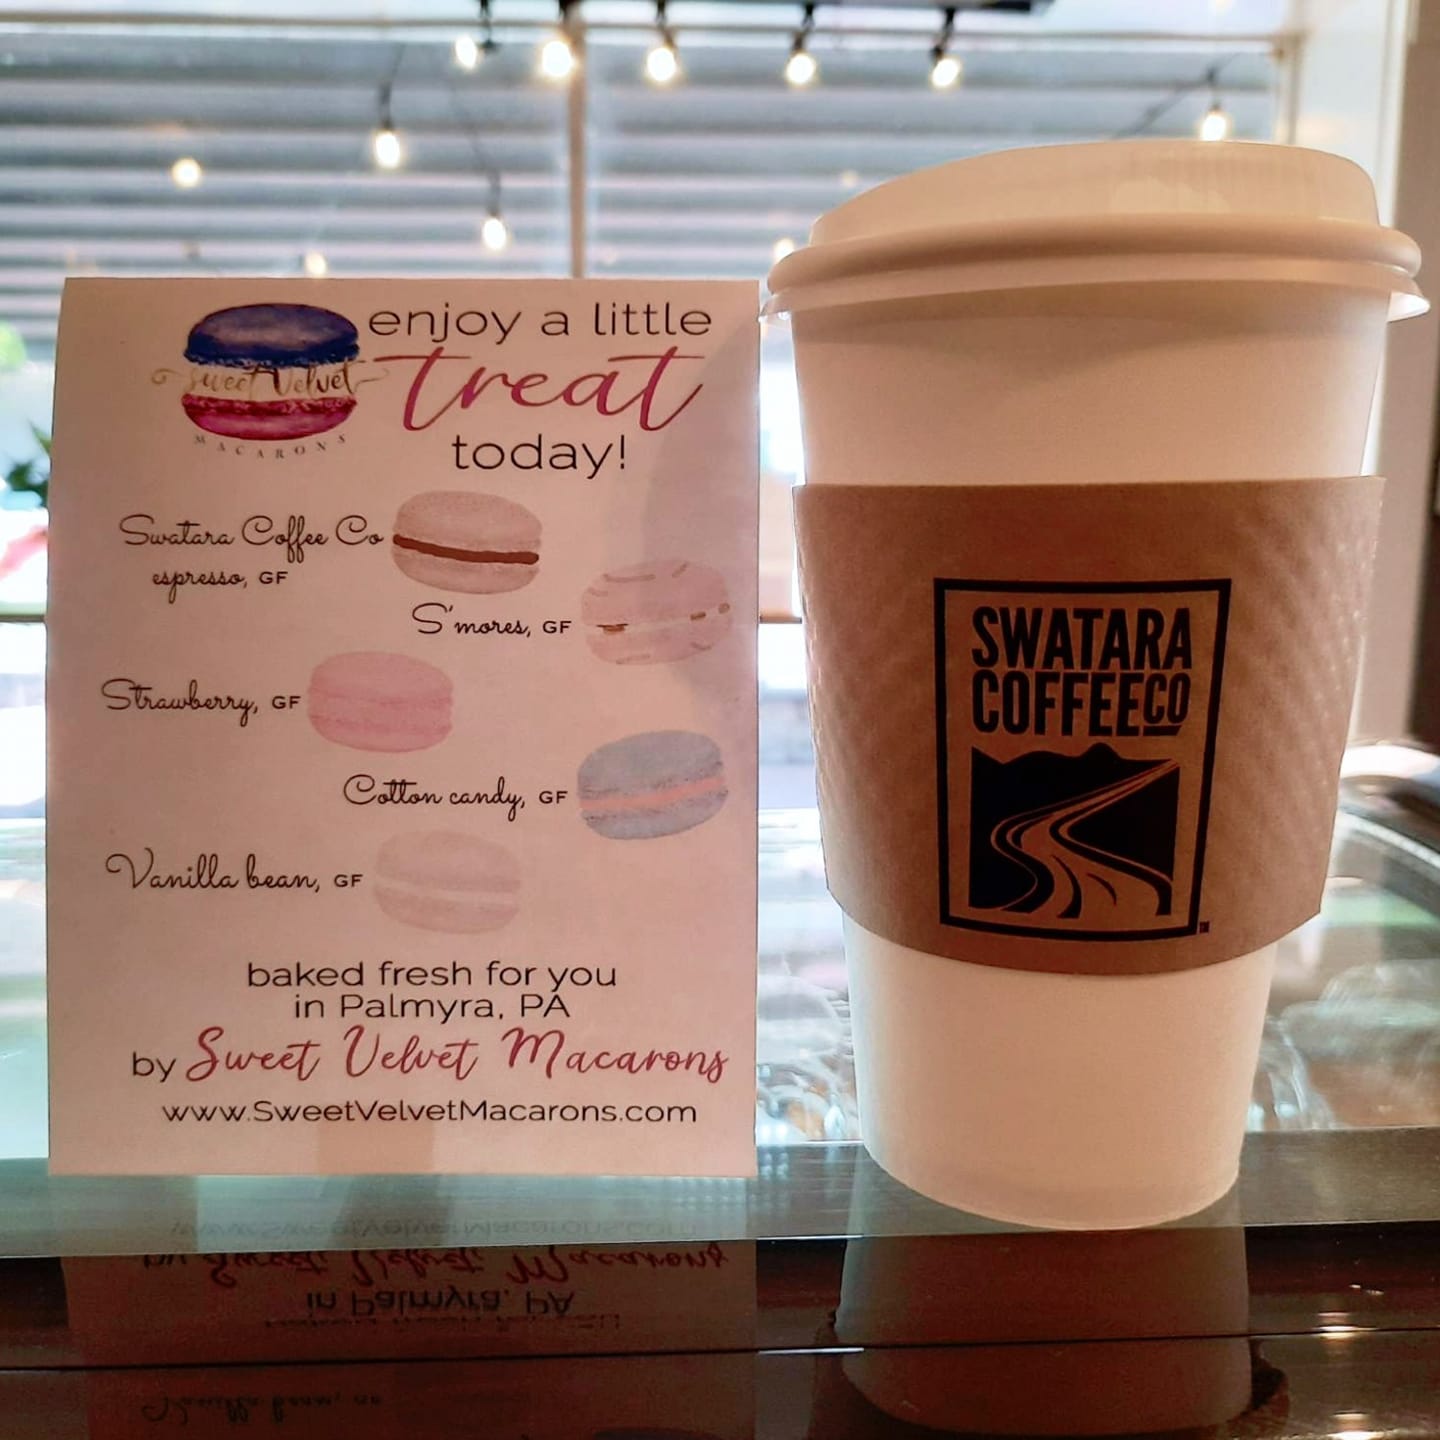 enjoy a little
treat
today!
Sweet Velvet
MACARONS
Swatara Coffee Co
espresso, GF
S'mores, GF
Strawberry, GF
Cotton candy, GF
Vanilla bean, GF
baked fresh for you
in Palmyra, PA
by Sweet Velvet Macarons
www.SweetVelvetMacarons.com
SWATARA
COFFEECO
TM